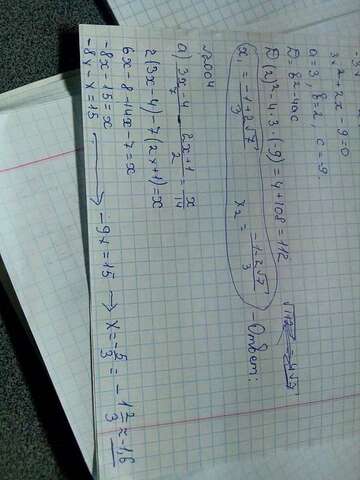 3x² + 2x - 9 = 0
a = 3, b = 2, c = -9.
D = b² - 4ac
D (2)² - 4 · 3 · (-9) = 4 + 108 = 112
√112 = 4√7
x₁ = (-1 + 2√7)/3   x₂ = (-1 - 2√7)/3 - Ответ:
№2004
а) (3x - 4)/7 - (2x + 1)/2 = x/14
2(3x - 4) - 7(2x + 1) = x
6x - 8 - 14x - 7 = x
-8x - 15 = x
-8x - x = 15 → -9x = 15 → x = -5/3 = -1 2/3 ≈ -1,6